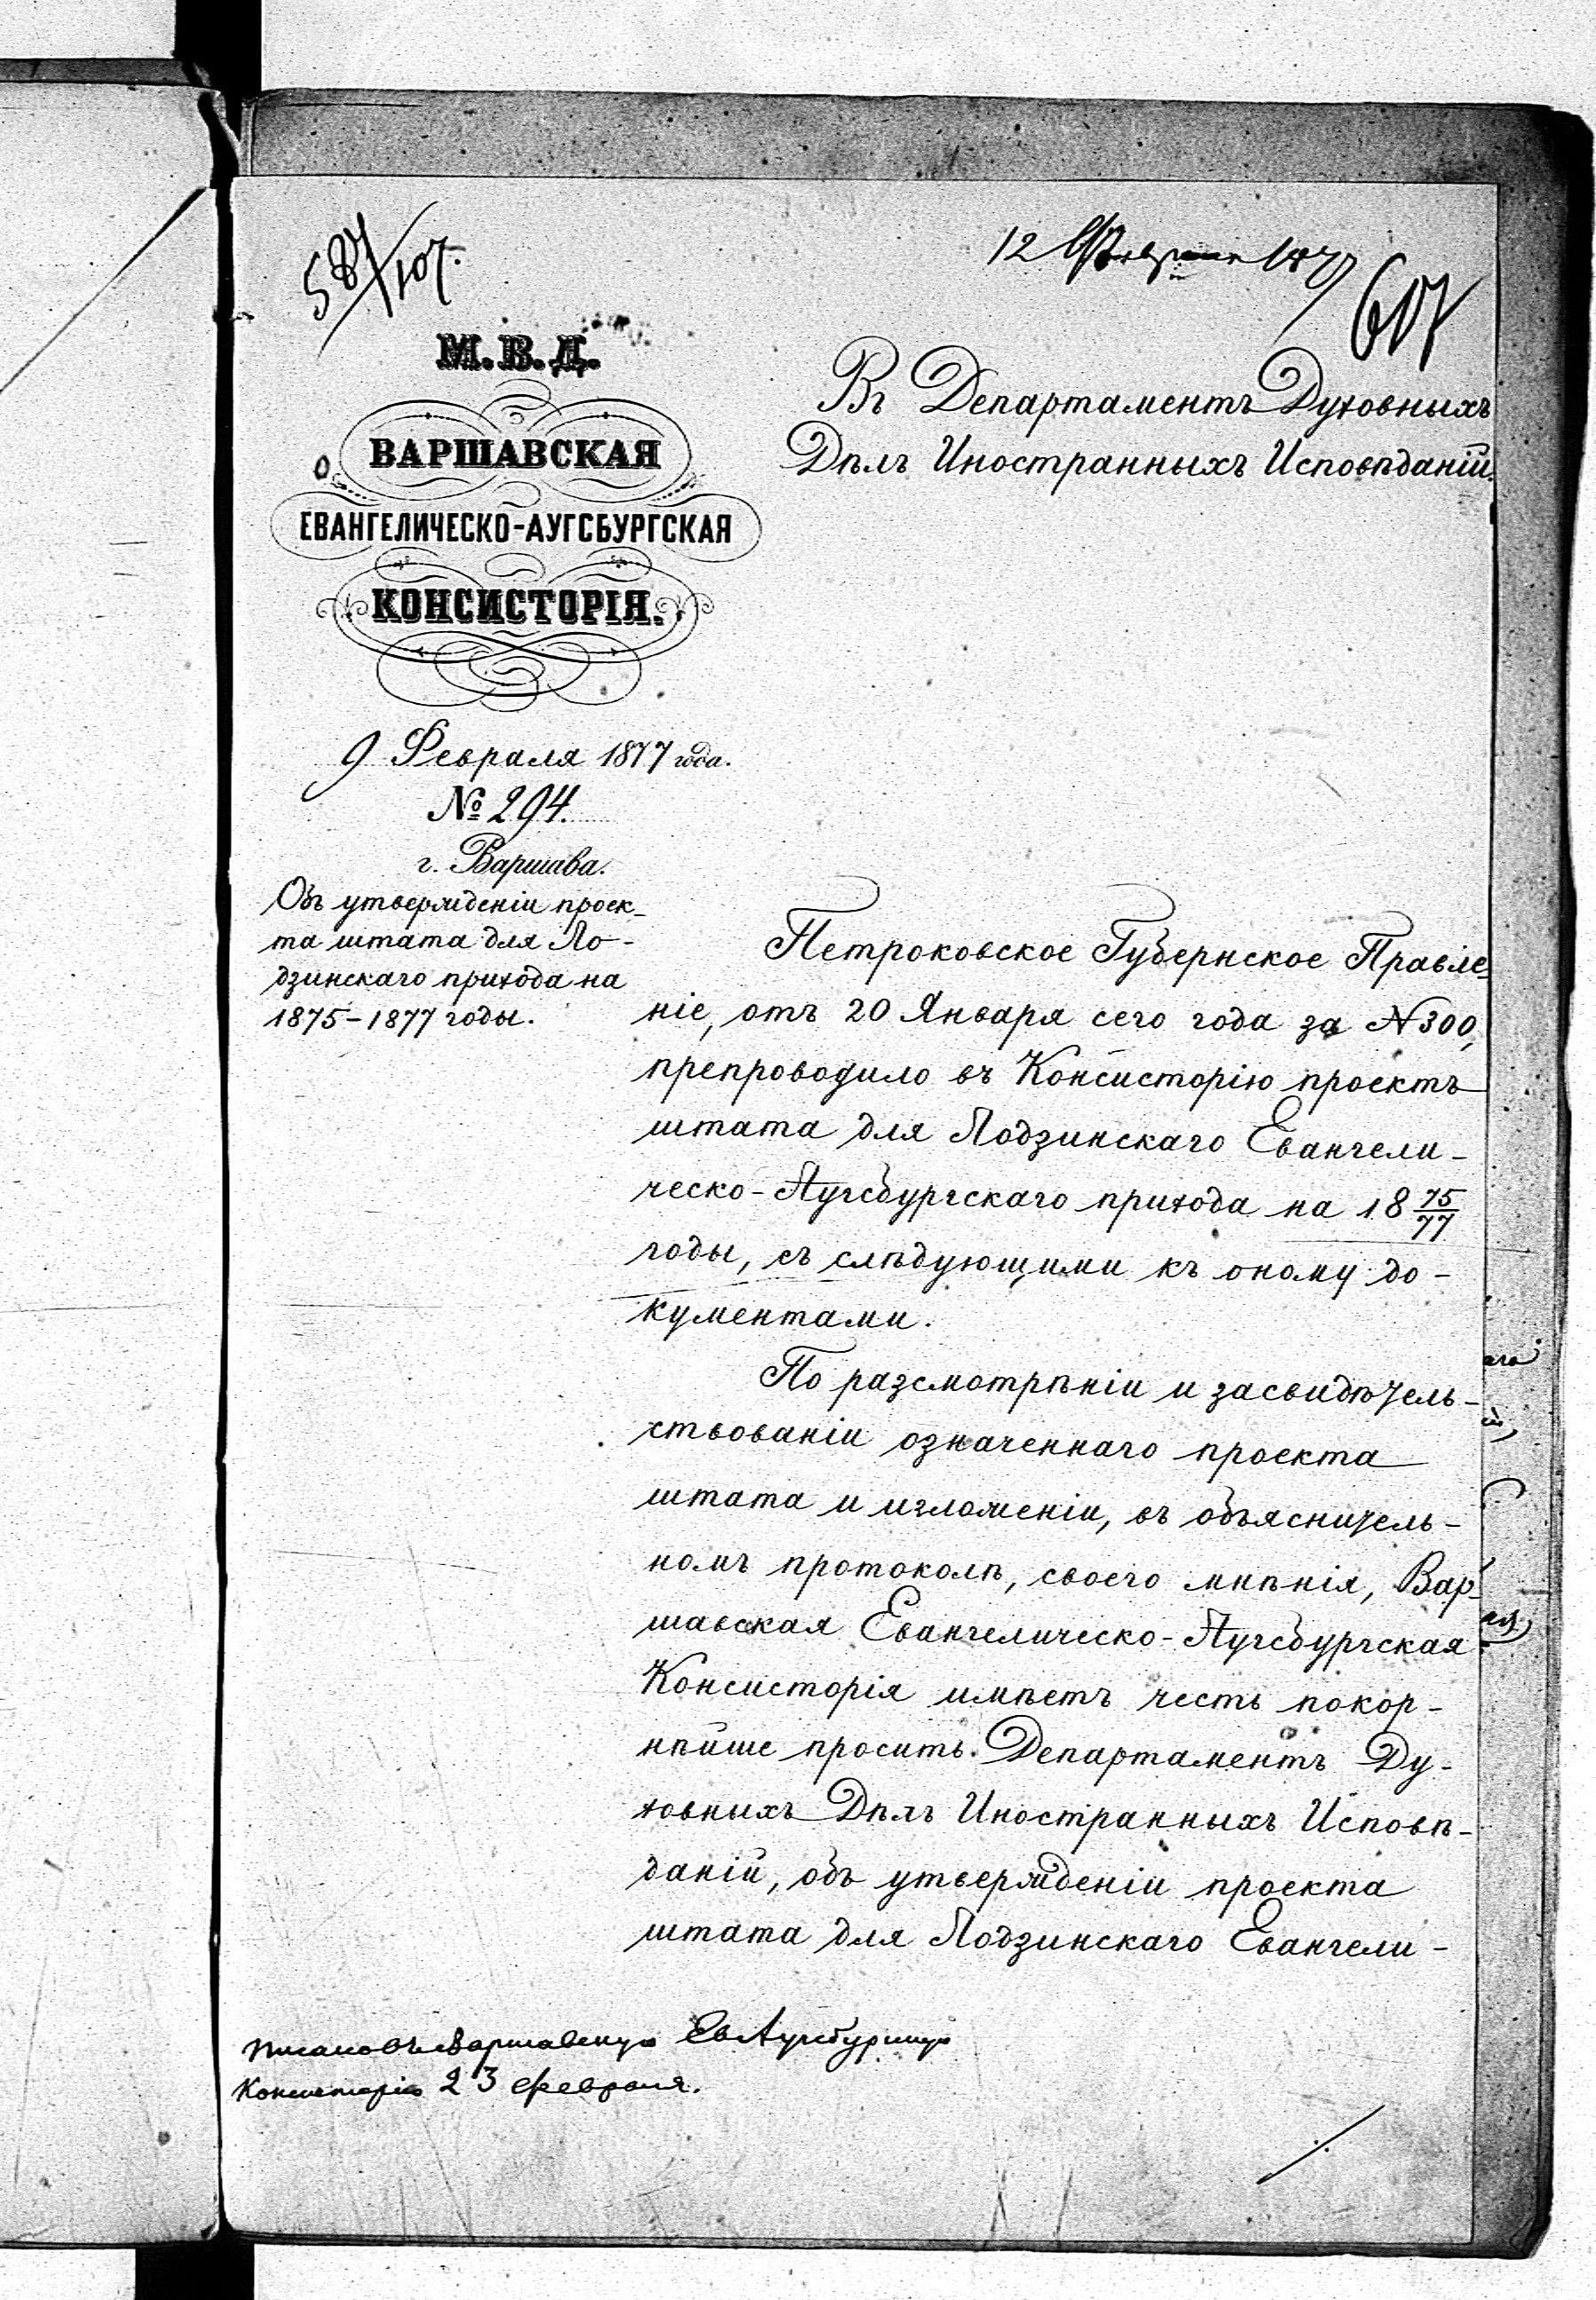 587/107.
12 Февраля 1877
607
М. В. Д.
ВАРШАВСКАЯ
ЕВАНГЕЛИЧЕСКО-АУГСБУРГСКАЯ
КОНСИСТОРІЯ.
9 Февраля 1877 года.
№ 294.
г. Варшава.
Объ утвержденіи проек-
та штата для Ло-
дзинскаго прихода на
1875-1877 годы.
Въ Департаментъ Духовныхъ
Дѣлъ Иностранныхъ Исповѣданій.
Петроковское Губернское Правле-
ніе, отъ 20 Января сего года за N 300,
препроводило въ Консисторію проектъ
штата для Лодзинскаго Евангели-
ческо-Аугсбургскаго прихода на 18 75/77
годы, съ слѣдующими къ оному до-
кументами.
По разсмотрѣніи и засвидѣтель-
ствованіи означеннаго проекта
штата и изложеніи, въ объяснитель-
номъ протоколѣ, своего мнѣнія, Вар-
шавская Евангелическо-Аугсбургская
Консисторія имѣетъ честь покор-
нѣйше просить Департаментъ Ду-
ховныхъ Дѣлъ Иностранныхъ Исповѣ-
даній, объ утвержденіи проекта
штата для Лодзинскаго Евангели-
писано въ Варшавскую Ев Аугсбургскую
Консисторію 23 февраля.